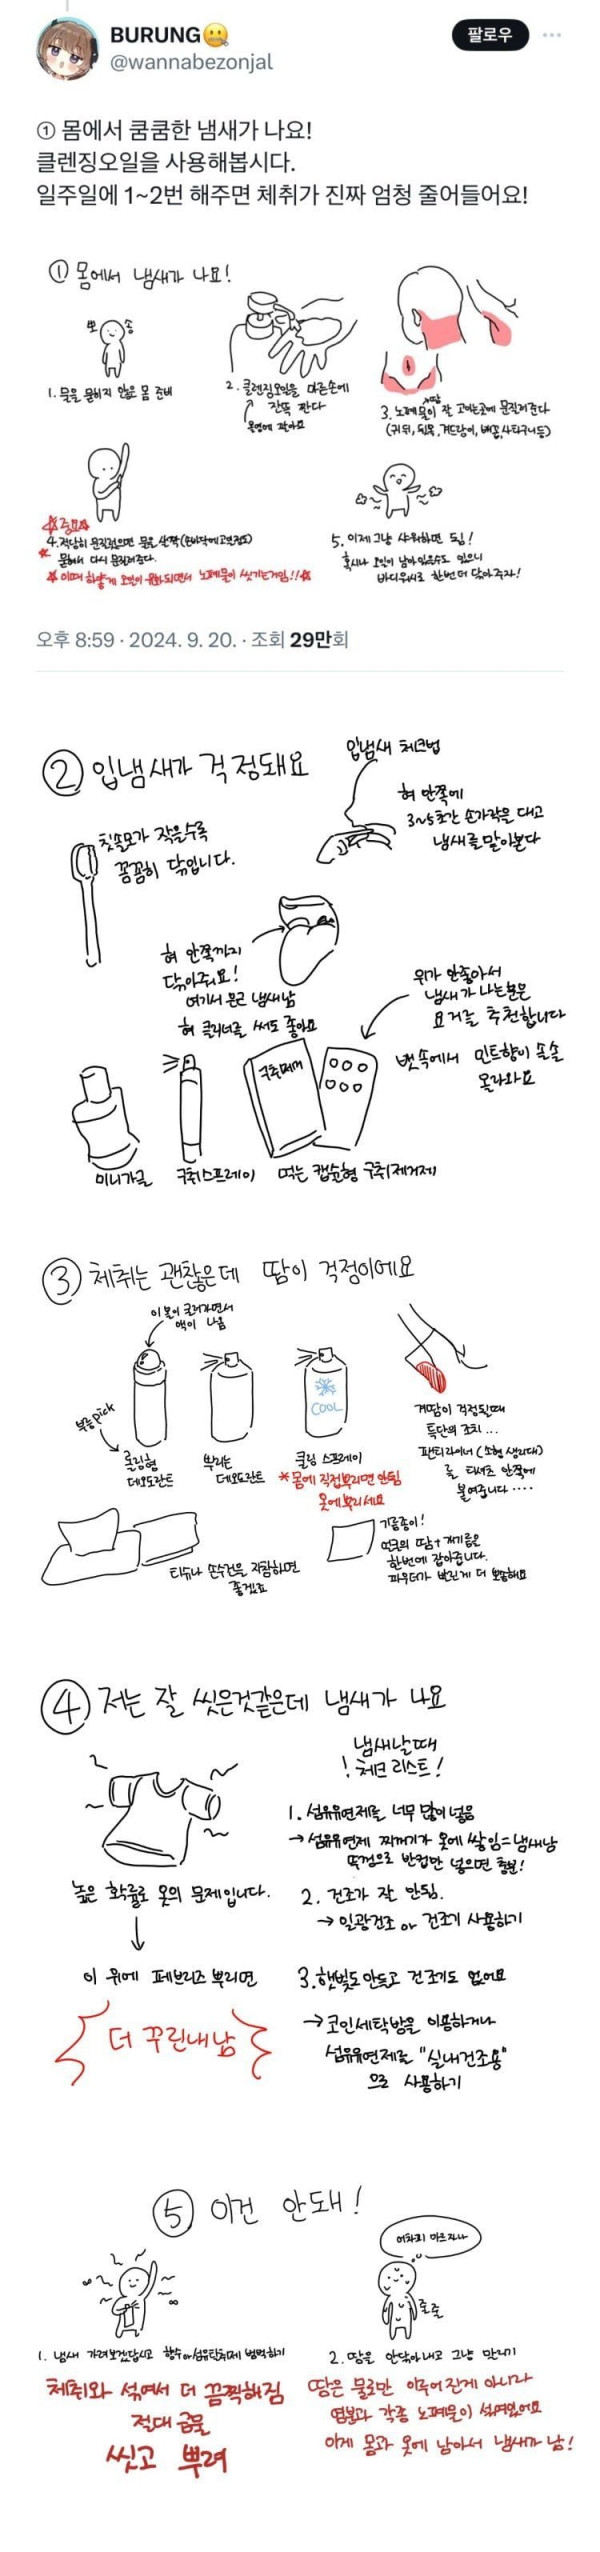 BURUNG🤐
@wannabezonjal
팔로우
① 몸에서 쿰쿰한 냄새가 나요!
클렌징오일을 사용해봅시다.
일주일에 1~2번 해주면 체취가 진짜 엄청 줄어들어요!
① 몸에서 냄새가 나요!
뽀송
1. 물을 묻히지 않은 몸 준비
2. 클렌징오일을 마른손에
잔뜩 짠다
3. 노폐물이 잘 고이는곳에 문질러준다
땀
(귀뒤, 뒷목, 겨드랑이, 배꼽, 사타구니등)
☆중요☆
4. 적당히 문질렀으면 물을 살짝 (손바닥에 고인정도)
묻혀서 다시 문질러준다.
☆ 이때 하얗게 오일이 유화되면서 노폐물이 씻기는거임!!☆
5. 이제 그냥 샤워하면 됨!
혹시나 오일이 남아있을수도 있으니
바디워시로 한번더 닦아주자!
오후 8:59 · 2024. 9. 20. · 조회 29만회
② 입냄새가 걱정돼요
입냄새 체크법
혀 안쪽에
3~5초간 손가락을 대고
냄새를 맡아본다
칫솔모가 작을수록
꼼꼼히 닦입니다.
혀 안쪽까지
닦아줘요!
여기서 은근 냄새남
혀 클리너를 써도 좋아요
위가 안좋아서
냄새가 나는분은
요거를 추천합니다
뱃속에서 민트향이 솔솔
올라와요
구취제거
미니가글
구취스프레이
먹는 캡슐형 구취제거제
③ 체취는 괜찮은데 땀이 걱정이에요
이 볼이 굴러가면서
액이 나옴
부릉pick
롤링형
데오도란트
뿌리는
데오도란트
COOL
쿨링 스프레이
*몸에 직접뿌리면 안됨
옷에뿌리세요
겨땀이 걱정될때
특단의 조치...
팬티라이너 (소형 생리대)
를 티셔츠 안쪽에
붙여줍니다....
티슈나 손수건을 지참하면
좋겠죠
기름종이!
얼굴의 땀+개기름을
한번에 잡아줍니다.
파우더가 발린게 더 뽀송해요
④ 저는 잘 씻은것같은데 냄새가 나요
냄새날때
! 체크 리스트!
1. 섬유유연제를 너무 많이 넣음
→ 섬유유연제 찌꺼기가 옷에 쌓임=냄새남
뚜껑으로 반컵만 넣으면 충분!
높은 확률로 옷의 문제입니다.
2. 건조가 잘 안됨.
→ 일광건조 or 건조기 사용하기
이 위에 페브리즈 뿌리면
더 꾸린내남
3. 햇빛도 안들고 건조기도 없어요
→ 코인세탁방을 이용하거나
섬유유연제를 "실내건조용"
으로 사용하기
⑤ 이건 안돼!
어차피 마르자나
줄줄
1. 냄새 가려보겠답시고 향수or섬유탈취제 범벅하기
체취와 섞여서 더 끔찍해짐
절대 금물
씻고 뿌려
2. 땀을 안닦아내고 그냥 말리기
땀은 물로만 이루어진게 아니라
염분과 각종 노폐물이 섞여있어요
이게 몸과 옷에 남아서 냄새가 남!